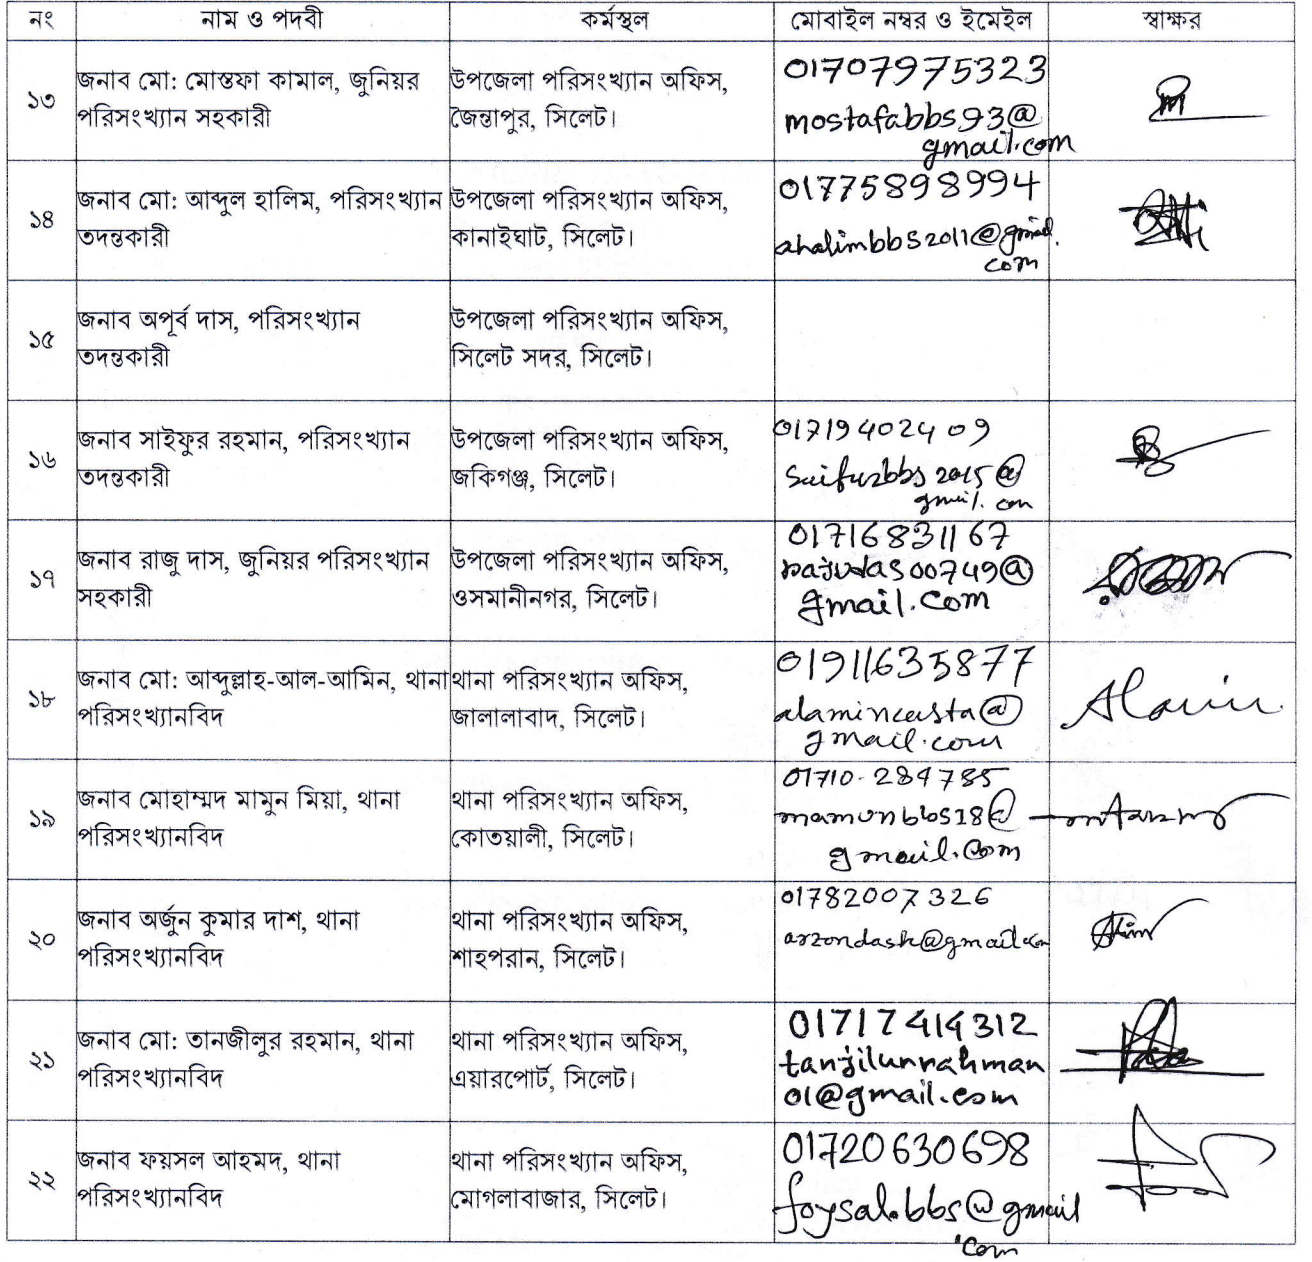 নং নাম ও পদবী কর্মস্থল মোবাইল নম্বর ও ইমেইল স্বাক্ষর
১৩ জনাব মো: মোস্তফা কামাল, জুনিয়র পরিসংখ্যান সহকারী উপজেলা পরিসংখ্যান অফিস, জৈন্তাপুর, সিলেট। 01707975323
mostafabbs93@
gmail.com
১৪ জনাব মো: আব্দুল হালিম, পরিসংখ্যান তদন্তকারী উপজেলা পরিসংখ্যান অফিস, কানাইঘাট, সিলেট। 01775898994
ahalimbbs2011@gmail.
com
১৫ জনাব অপূর্ব দাস, পরিসংখ্যান তদন্তকারী উপজেলা পরিসংখ্যান অফিস, সিলেট সদর, সিলেট।
১৬ জনাব সাইফুর রহমান, পরিসংখ্যান তদন্তকারী উপজেলা পরিসংখ্যান অফিস, জকিগঞ্জ, সিলেট। 01719402409
saifurbbs2015@
gmail.com
১৭ জনাব রাজু দাস, জুনিয়র পরিসংখ্যান সহকারী উপজেলা পরিসংখ্যান অফিস, ওসমানীনগর, সিলেট। 01716831167
rajudas00749@
gmail.com
১৮ জনাব মো: আব্দুল্লাহ-আল-আমিন, থানা পরিসংখ্যানবিদ থানা পরিসংখ্যান অফিস, জালালাবাদ, সিলেট। 01911635877
@
gmail.com
Alamin
১৯ জনাব মোহাম্মদ মামুন মিয়া, থানা পরিসংখ্যানবিদ থানা পরিসংখ্যান অফিস, কোতয়ালী, সিলেট। 01710-284785
mamunbbs18@
gmail.com
২০ জনাব অর্জুন কুমার দাশ, থানা পরিসংখ্যানবিদ থানা পরিসংখ্যান অফিস, শাহপরান, সিলেট। 01782007326
arzondash@gmail.com
২১ জনাব মো: তানজীলুর রহমান, থানা পরিসংখ্যানবিদ থানা পরিসংখ্যান অফিস, এয়ারপোর্ট, সিলেট। 01717414312
tanjilurrahman
01@gmail.com
২২ জনাব ফয়সল আহমদ, থানা পরিসংখ্যানবিদ থানা পরিসংখ্যান অফিস, মোগলাবাজার, সিলেট। 01720630698
foysal.bbs@gmail
.com